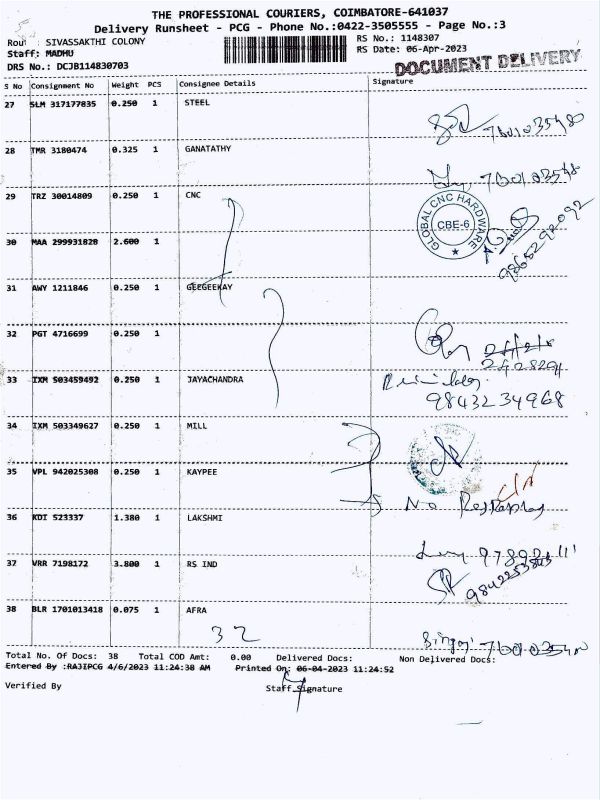 THE PROFESSIONAL COURIERS, COIMBATORE-641037
Delivery Runsheet - PCG - Phone No.:0422-3505555 - Page No.:3
Rout : SIVASSAKTHI COLONY
RS No.: 1148307
Staff: MADHU
RS Date: 06-Apr-2023
DRS No.: DCJB114830703
DOCUMENT DELIVERY
S No Consignment No Weight PCS Consignee Details Signature
27 SLM 317177835 0.250 1 STEEL
28 TMR 3180474 0.325 1 GANATATHY
29 TRZ 30014809 0.250 1 CNC
GLOBAL CNC HARDWARE
CBE-6
9865292092
30 MAA 299931828 2.600 1
31 AWY 1211846 0.250 1 GEEGEEKAY
32 PGT 4716699 0.250 1
33 IXM 503459492 0.250 1 JAYACHANDRA
9843234968
34 IXM 503349627 0.250 1 MILL
35 VPL 942025308 0.250 1 KAYPEE
No
36 KDI 523337 1.380 1 LAKSHMI
37 VRR 7198172 3.800 1 RS IND
9842253843
38 BLR 1701013418 0.075 1 AFRA
32
Total No. Of Docs: 38 Total COD Amt: 0.00 Delivered Docs: Non Delivered Docs:
Entered By :RAJIPCG 4/6/2023 11:24:38 AM Printed On: 06-04-2023 11:24:52
Verified By Staff Signature